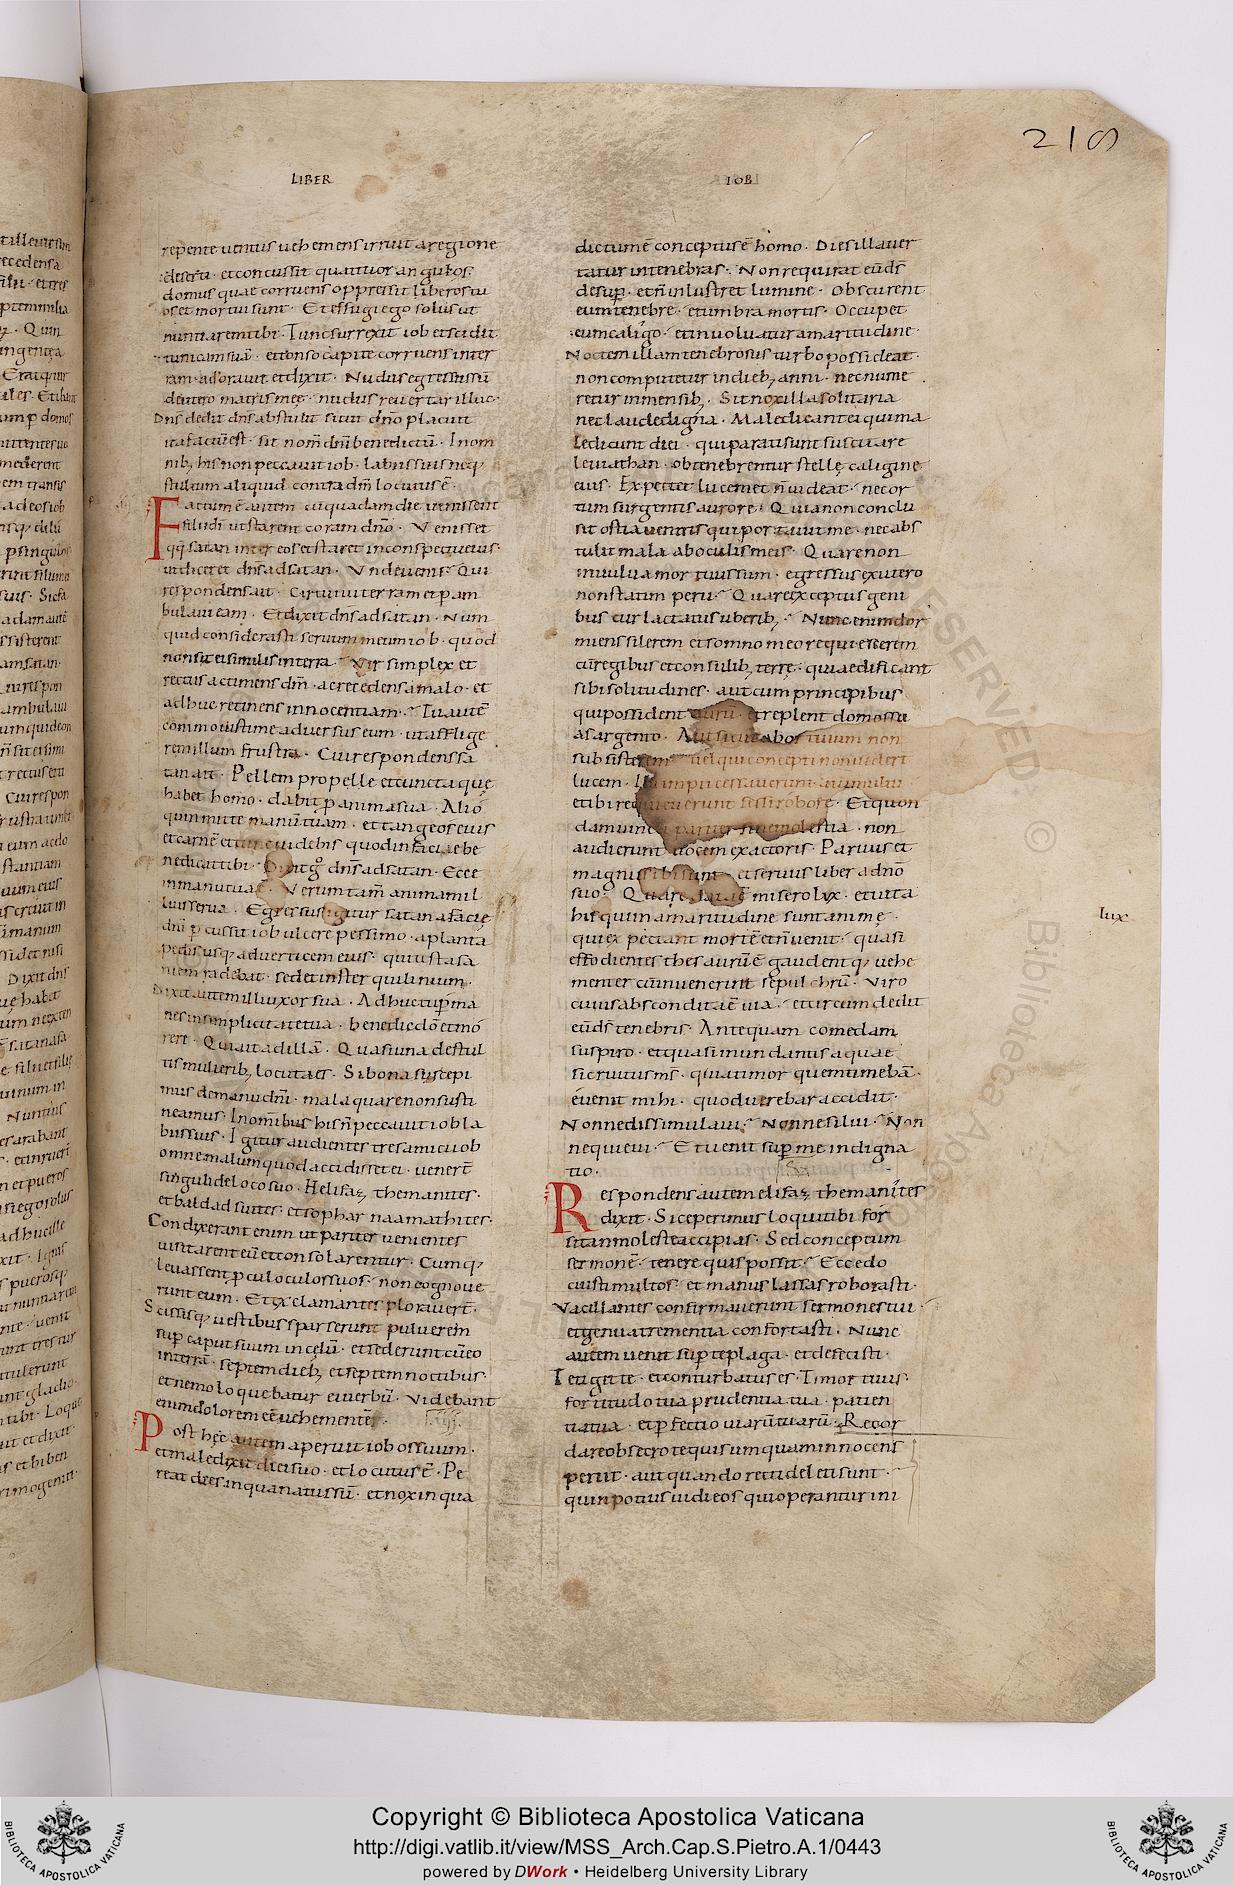 218
LIBER
IOB
repente uentus uehemens irruit a regione
deserti · et concussit quattuor angulos
domus quae corruens oppressit liberos tu
os et mortui sunt · Et effugi ego solus ut
nuntiarem tibi · Tunc surrexit iob et scidit
tunicam suā · et tonso capite corruens in ter
ram · adorauit et dixit · Nudus egressus sū
de utero matris meę · nudus reuertar illuc ·
Dn̄s dedit dn̄s abstulit sicut dn̄o placuit
ita factū est · sit nom̄ dn̄i benedictū · In om
nib; his non peccauit iob · labiis suis neq;
stultum aliquid contra dm̄ locutus ē ·
Factum ē autem cū quadam die uenissent
filii dī ut starent coram dn̄o · Venisset
qq̄ satan inter eos et staret in conspectu eius ·
ut diceret dn̄s ad satan · Vnde uenis · Qui
respondens ait · Circuiui terram et p̄am
bulaui eam · Et dixit dn̄s ad satan · Num
quid considerasti seruum meum iob · quod
non sit ei similis in terra · Vir simplex et
rectus ac timens dm̄ · ac recedens a malo · et
adhuc retinens innocentiam · Tu autē
commouisti me aduersus eum · ut afflige
rem illum frustra · Cui respondens sa
tan ait · Pellem pro pelle et cuncta quę
habet homo · dabit p̄ anima sua · Alio
quin mitte manū tuam · et tange os eius
et carnē et tunc uidebis quod in faciae be
nedicat tibi · Dixit g̊ dn̄s ad satan · Ecce
in manu tua ē · Verum tam̄ animam il
lius serua · Egressus igitur satan a facię
dn̄i p̄cussit iob ulcere pessimo · a planta
pedis usq; ad uerticem eius · qui testa sa
niem radebat · sedet in ster quilinium ·
Dixit autem illi uxor sua · Adhuc tu p̄ma
nes in simplicitate tua · benedic dō et mo
rere · Qui ait ad illā · Quasi una de stul
tis mulierib; locuta es · Si bona suscepi
mus de manu dn̄i · mala quare non susti
neamus · In omībus his n̄ peccauit iob la
bis suis · Igitur audientes tres amici iob
omne malum quod accidisset ei · uenert̄
singuli de loco suo · Helifaz themanites ·
et baldad suites · et sophar naamathites ·
Condixerant enim ut pariter uenientes
uisitarent eū et consolarentur · Cumq;
leuassent p̄cul oculos suos · non cognoue
runt eum · Et exclamantes plorauert̄ ·
Scissisq; uestibus sparserunt puluerem
sup̄ caput suum in cęlū · et sederunt cū eo
in terrā · septem dieb; et septem noctibus ·
et nemo loquebatur ei uerbū · Videbant
enim dolorem eē uehementē ·
Post hęc autem aperuit iob os suum ·
et maledixit diei suo · et locutus ē · Pe
reat dies in qua natus sū · et nox in qua
dictum ē conceptus ē homo · Dies illa uer
tatur in tenebras · Non requirat eū ds̄
desup̄ · et n̄ inlustret lumine · Obscurent
eum tenebre · et umbra mortis · Occupet
eum caligo · et inuoluatur amaritudine ·
Noctem illam tenebrosus turbo possideat ·
non computetur in dieb; anni · nec nume
retur in mensib; · Sit nox illa solitaria
nec laude digna · Maledicant ei qui ma
ledicunt diei · qui parati sunt suscitare
leuiathan · obtenebrentur stellę caligine
eius · Expectet lucem et n̄ uideat · nec or
tum surgentis aurore · Quia non conclu
sit ostia uentris qui portauit me · nec abs
tulit mala ab oculis meis · Quare non
in uulua mortuus sum · egressus ex utero
non statim perii · Quare exceptus geni
bus cur lactatus uberib; · Nunc enim dor
miens silerem et somno meo requiescerem
cū regibus et consulib; terrę · qui aedificant
sibi solitudines · aut cum principibus
qui possident aurū · et replent domos su
as argento · Aut sicut abortiuum non
subsisterem · uel qui concepti non uidert
lucem · Ibi impii cessauerunt a tumultu
et ibi requieuerunt fessi robore · Et quon
dam uincti pariter sine molestia · non
audierunt uocem exactoris · Paruus et
magnus ibi sunt · et seruus liber a dn̄o
suo · Quare data ē misero lyx · et uita
his qui in amaritudine sunt animę ·
lux
qui expectant mortē et n̄ uenit · quasi
effodientes thesaurū ē gaudentq; uehe
menter cū inuenerint sepulchrū · Viro
cuius abscondita ē uia · et circumdedit
eū ds̄ tenebris · Antequam comedam
suspiro · et quasi inundantis aquae
sic rugitus ms̄ · quia timor quem timebā ·
euenit mihi · quod uerebar accidit ·
Nonne dissimulaui · Nonne silui · Non
ne quieui · Et uenit sup̄ me indigna
tio ·
Respondens autem elifaz themanites
dixit · Si ceperimus loqui tibi for
sitan moleste accipias · Sed conceptum
sermonē · tenere quis possit · Ecce do
cuisti multos · et manus lassas roborasti ·
Vacillantes confirmauerunt sermones tui ·
et genua trementia confortasti · Nunc
autem uenit sup̄ te plaga · et defecisti ·
Tetigit te · et conturbatus es · Timor tuus ·
fortitudo tua prudentia tua · patien
tia tua · et p̄fectio uiarū tuarū · Recor
dare obsecro te quis umquam innocens
periit · aut quando recti deleti sunt ·
quin potius uidi eos qui operantur ini
Copyright © Biblioteca Apostolica Vaticana
http://digi.vatlib.it/view/MSS_Arch.Cap.S.Pietro.A.1/0443
powered by DWork • Heidelberg University Library
BIBLIOTECA APOSTOLICA VATICANA
BIBLIOTECA APOSTOLICA VATICANA